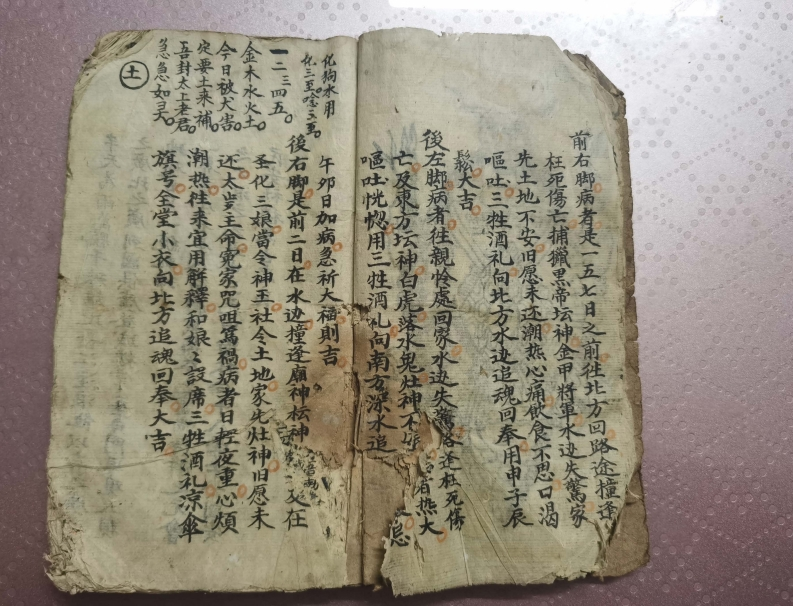 前右脚病者是一五七日之前徃北方回路途撞逢
枉死傷亡捕獵黑帝坛神金甲將軍水边失驚家
先土地不安旧愿未还潮热心痛飲食不思口渴
嘔吐三牲酒礼向北方水边追魂回奉用申子辰
鬆大吉
後左脚病者徃親怜處回家水边失驚路逢枉死傷
亡及東方坛神白虎落水鬼灶神不
热大
嘔吐恍惚用三牲酒礼向南方深水追
午卯日加病急祈大福則吉
後右脚是前二日在水边撞逢廟神坛神
又在
聖化三娘當令神王社令土地家先灶神旧愿未
还太岁王命冤家咒咀篤禍病者日輕夜重心煩
潮热徃来宜用解釋和娘〻設席三牲酒礼凉傘
旗号全堂小衣向北方追魂回奉大吉
化狗水用
一二三四五
金木水火土
今日被犬害
定要土来補
吾封太上老君
急急如
土